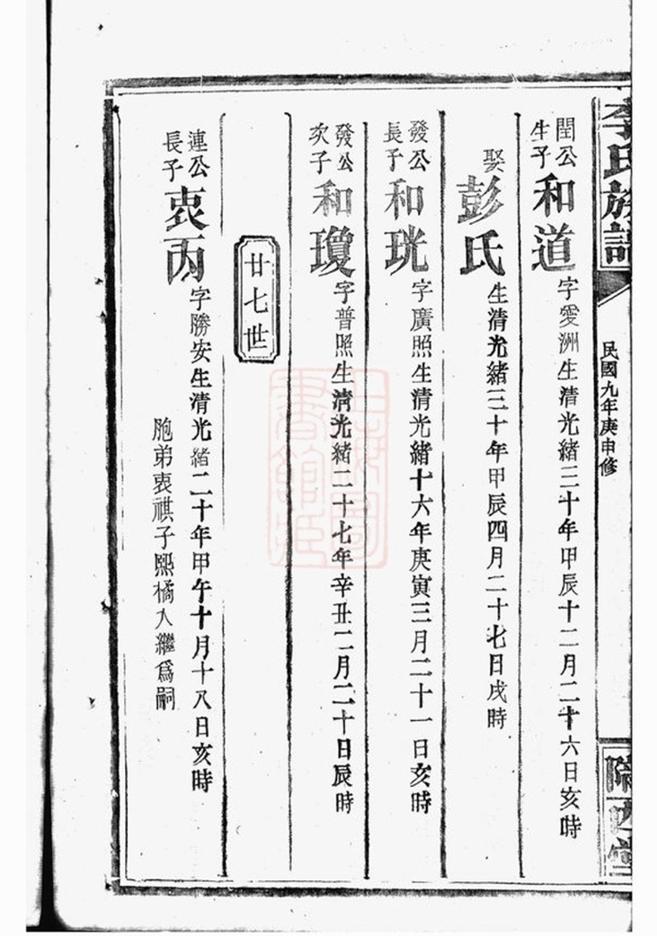 李氏族譜
民國九年庚申修
隴西堂
閏公生子和道字愛洲生清光緒三十年甲辰十二月二十六日亥時
娶彭氏生清光緒三十年甲辰四月二十七日戌時
發公長子和珖字廣照生清光緒十六年庚寅三月二十一日亥時
發公次子和瓊字普照生清光緒二十七年辛丑二月二十日辰時
廿七世
連公長子衷丙字勝安生清光緒二十年甲午十月十八日亥時
胞弟衷祺子熙橘入繼爲嗣
上海圖書館藏